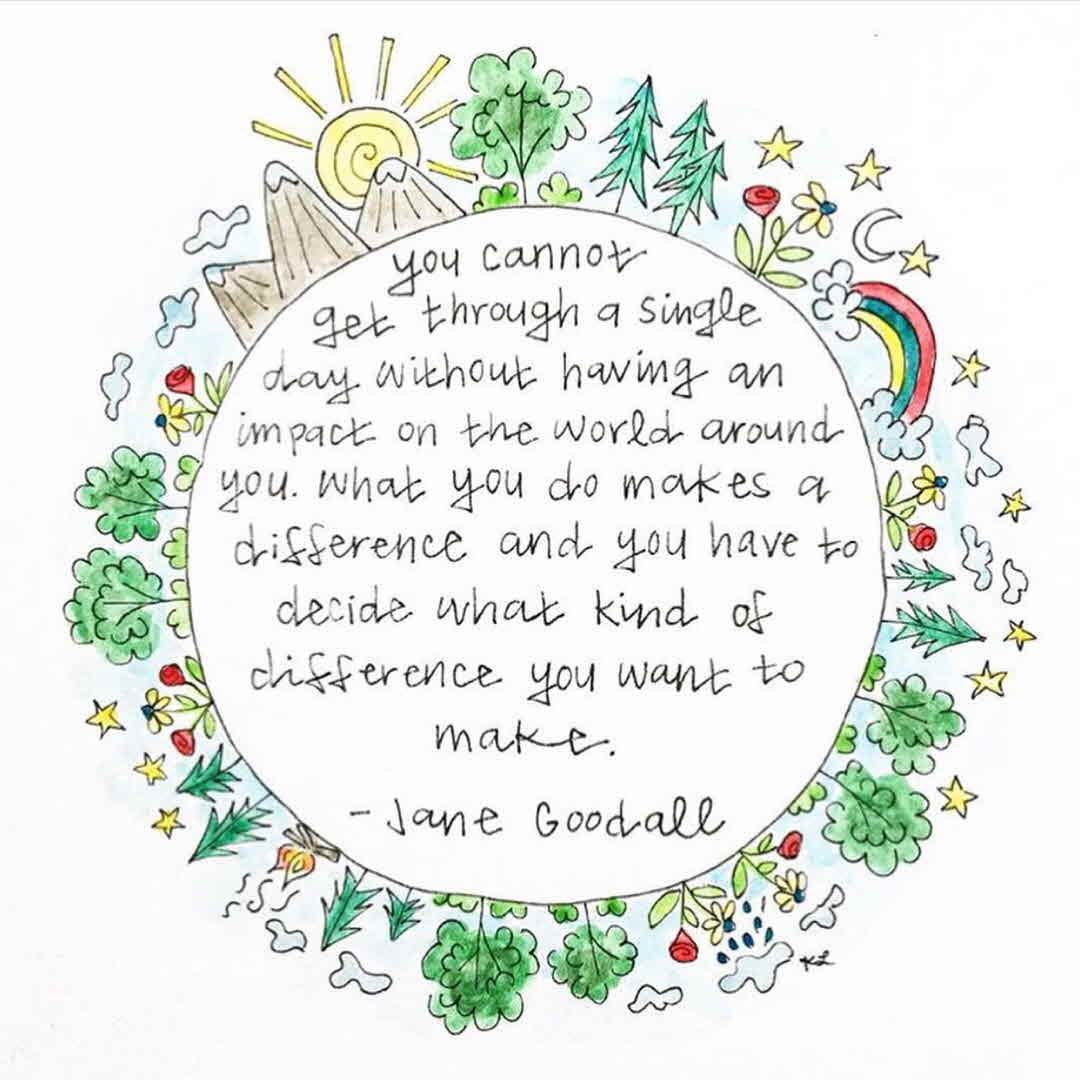 you cannot
get through a single
day without having an
impact on the world around
you. what you do makes a
difference and you have to
decide what kind of
difference you want to
make.
- Jane Goodall
KL